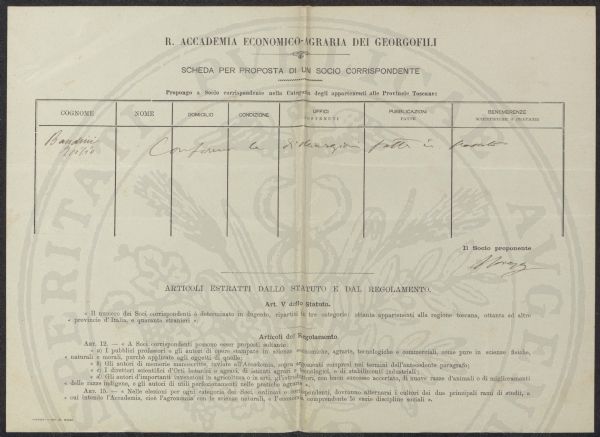 R. ACCADEMIA ECONOMICO-AGRARIA DEI GEORGOFILI
SCHEDA PER PROPOSTA DI UN SOCIO CORRISPONDENTE
Propongo a Socio corrispondente nella Categoria degli appartenenti alle Provincie Toscane:
COGNOME NOME DOMICILIO CONDIZIONE UFFICI PUBBLICAZIONI BENEMERENZE
SOSTENUTI FATTE
Bandini Confermo le dichiarazioni fatte in
Il Socio proponente
ARTICOLI ESTRATTI DALLO STATUTO E DAL REGOLAMENTO.
Art. V dello Statuto.
« Il numero dei Soci corrispondenti è determinato in dugento, ripartiti in tre categorie: ottanta appartenenti alla regione toscana, ottanta ad altre
« provincie d'Italia, e quaranta stranieri »
Articoli del Regolamento
ART. 12. — « A Soci corrispondenti possono esser proposti soltanto:
« a) I pubblici professori e gli autori di opere stampate in scienze economiche, agrarie, tecnologiche e commerciali, come pure in scienze fisiche,
« naturali e morali, purchè applicate agli oggetti di quelle;
« b) Gli autori di memorie manoscritte, inviate all'Accademia, sopra argomenti compresi nei termini dell'antecedente paragrafo;
« c) I direttori scientifici d'Orti botanici e agrari, di istituti agrari e tecnologici, e di stabilimenti industriali;
« d) Gli autori d'importanti invenzioni in agricoltura o in arti, gl'introduttori, con buon successo accertato, di nuove razze d'animali o di miglioramenti
« delle razze indigene, o gli autori di utili perfezionamenti nelle pratiche agrarie ».
ART. 15. — « Nelle elezioni per ogni categoria dei Soci ordinari o corrispondenti, dovranno alternarsi i cultori dei due principali rami di studii, a
« cui intende l'Accademia, cioè l'agronomia con le scienze naturali, e l'economia comprendente le varie discipline sociali ».